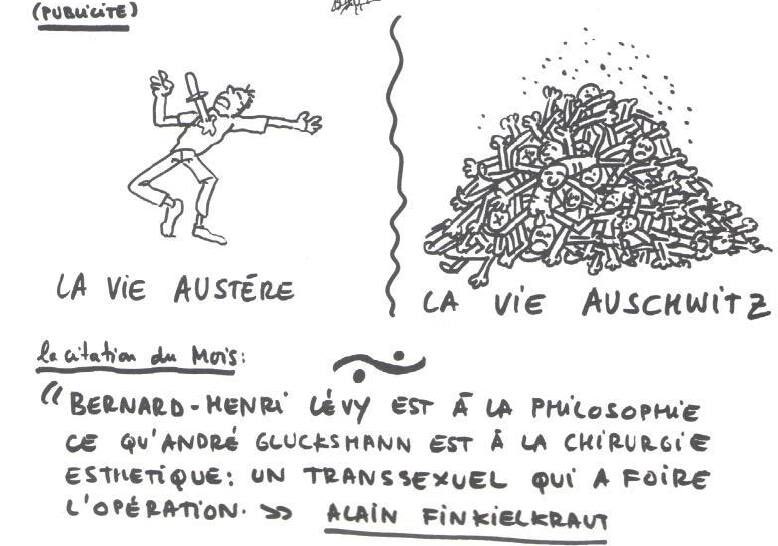 (PUBLICITÉ)
LA VIE AUSTÉRE
LA VIE AUSCHWITZ
la citation du Mois:
"BERNARD-HENRI LÉVY EST À LA PHILOSOPHIE
CE QU'ANDRÉ GLUCKSMANN EST À LA CHIRURGIE
ESTHETIQUE: UN TRANSSEXUEL QUI A FOIRE
L'OPÉRATION. >> ALAIN FINKIELKRAUT